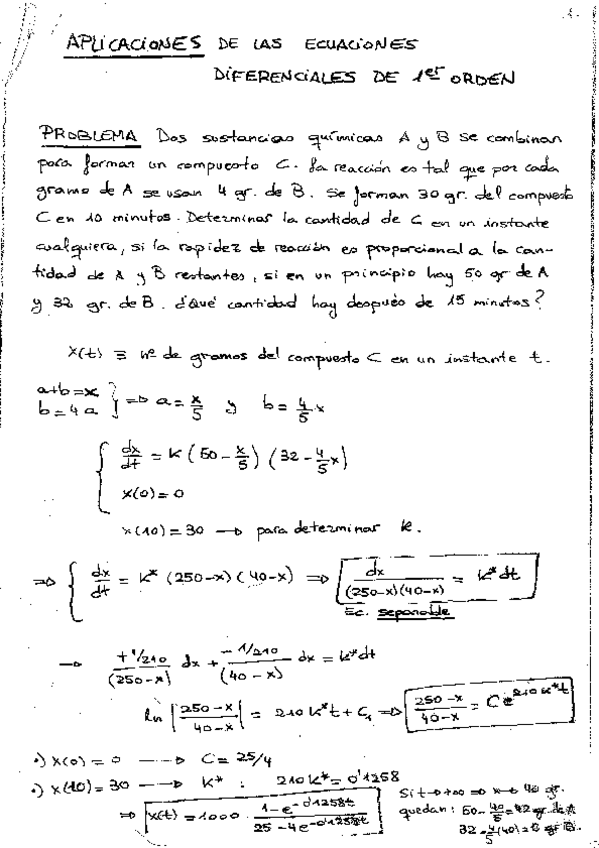 1.
APLICACIONES DE LAS ECUACIONES
DIFERENCIALES DE 1er ORDEN
PROBLEMA Dos sustancias químicas A y B se combinan
para formar un compuesto C. La reacción es tal que por cada
gramo de A se usan 4 gr. de B. Se forman 30 gr. del compuesto
C en 10 minutos. Determinar la cantidad de C en un instante
cualquiera, si la rapidez de reacción es proporcional a la can-
tidad de A y B restantes, si en un principio hay 50 gr de A
y 32 gr. de B. ¿Qué cantidad hay después de 15 minutos?
X(t) ≡ nº de gramos del compuesto C en un instante t.
a+b=x
b=4a } => a = x/5 y b = 4/5 x
{ dx/dt = K (50 - x/5) (32 - 4/5 x)
x(0)=0
x(10)=30 → para determinar K.
=> { dx/dt = K* (250-x)(40-x) => dx/((250-x)(40-x)) = K* dt
Ec. separable
→ (+1/210)/(250-x) dx + (-1/210)/(40-x) dx = K* dt
ln |(250-x)/(40-x)| = 210 K* t + C₁ => (250-x)/(40-x) = C e^(210K*t)
•) X(0) = 0 ---→ C = 25/4
•) X(10) = 30 --→ K* : 210K* = 0'1258
=> X(t) = 1000 · (1-e^(-0'1258t))/(25-4e^(-0'1258t))
Si t→+∞ => x→ 40 gr.
quedan: 50 - 40/5 = 42 gr. de A
32 - 4/5 (40) = 0 gr B.